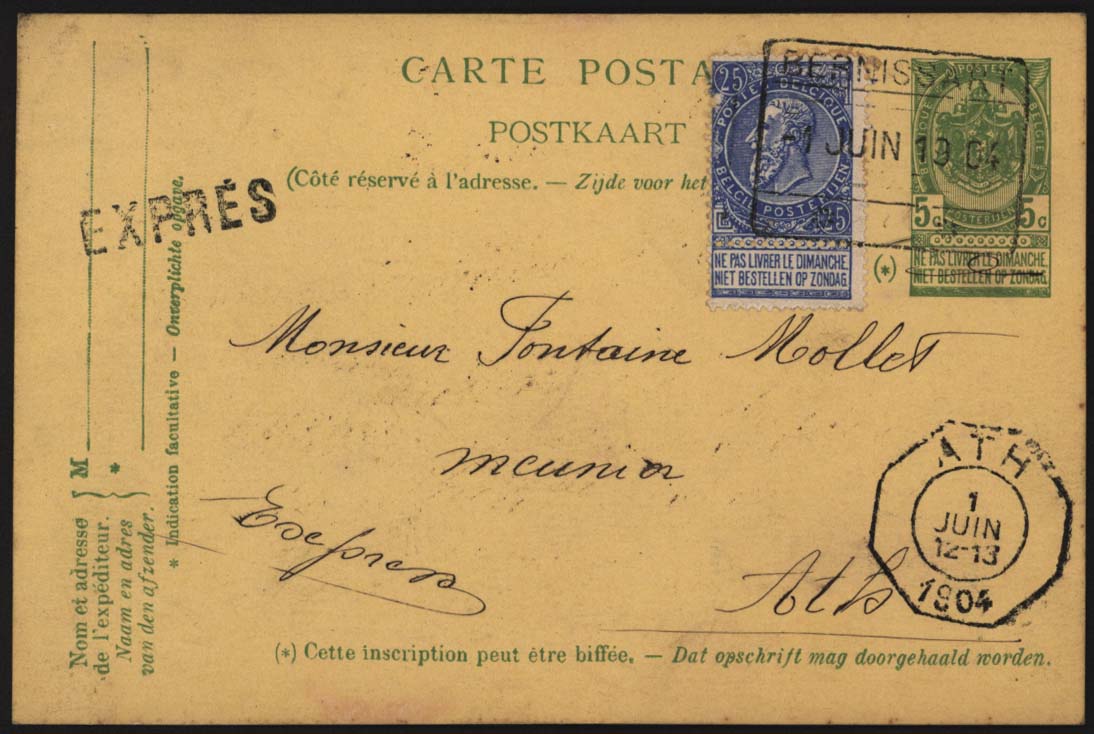 CARTE POSTA
POSTKAART
(Côté réservé à l'adresse. — Zijde voor het
25 25
POSTES BELGIQUE
BELGIË POSTERIJEN
25
NE PAS LIVRER LE DIMANCHE
NIET BESTELLEN OP ZONDAG
BERNISSART
-1 JUIN 1904
POSTES
BELGIQUE BELGIË
POSTERIJEN
5c 5c
(*)
NE PAS LIVRER LE DIMANCHE
NIET BESTELLEN OP ZONDAG
EXPRÈS
Monsieur Fontaine Mollet
meunier
Express
Ath
ATH
1
JUIN
12-13
1904
(*) Cette inscription peut être biffée. — Dat opschrift mag doorgehaald worden.
Nom et adresse
de l'expéditeur.
Naam en adres
van den afzender.
} M
} *
* Indication facultative — Onverplichte opgave.